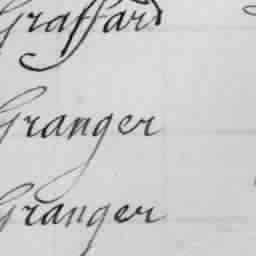 Graffard
Granger
Granger